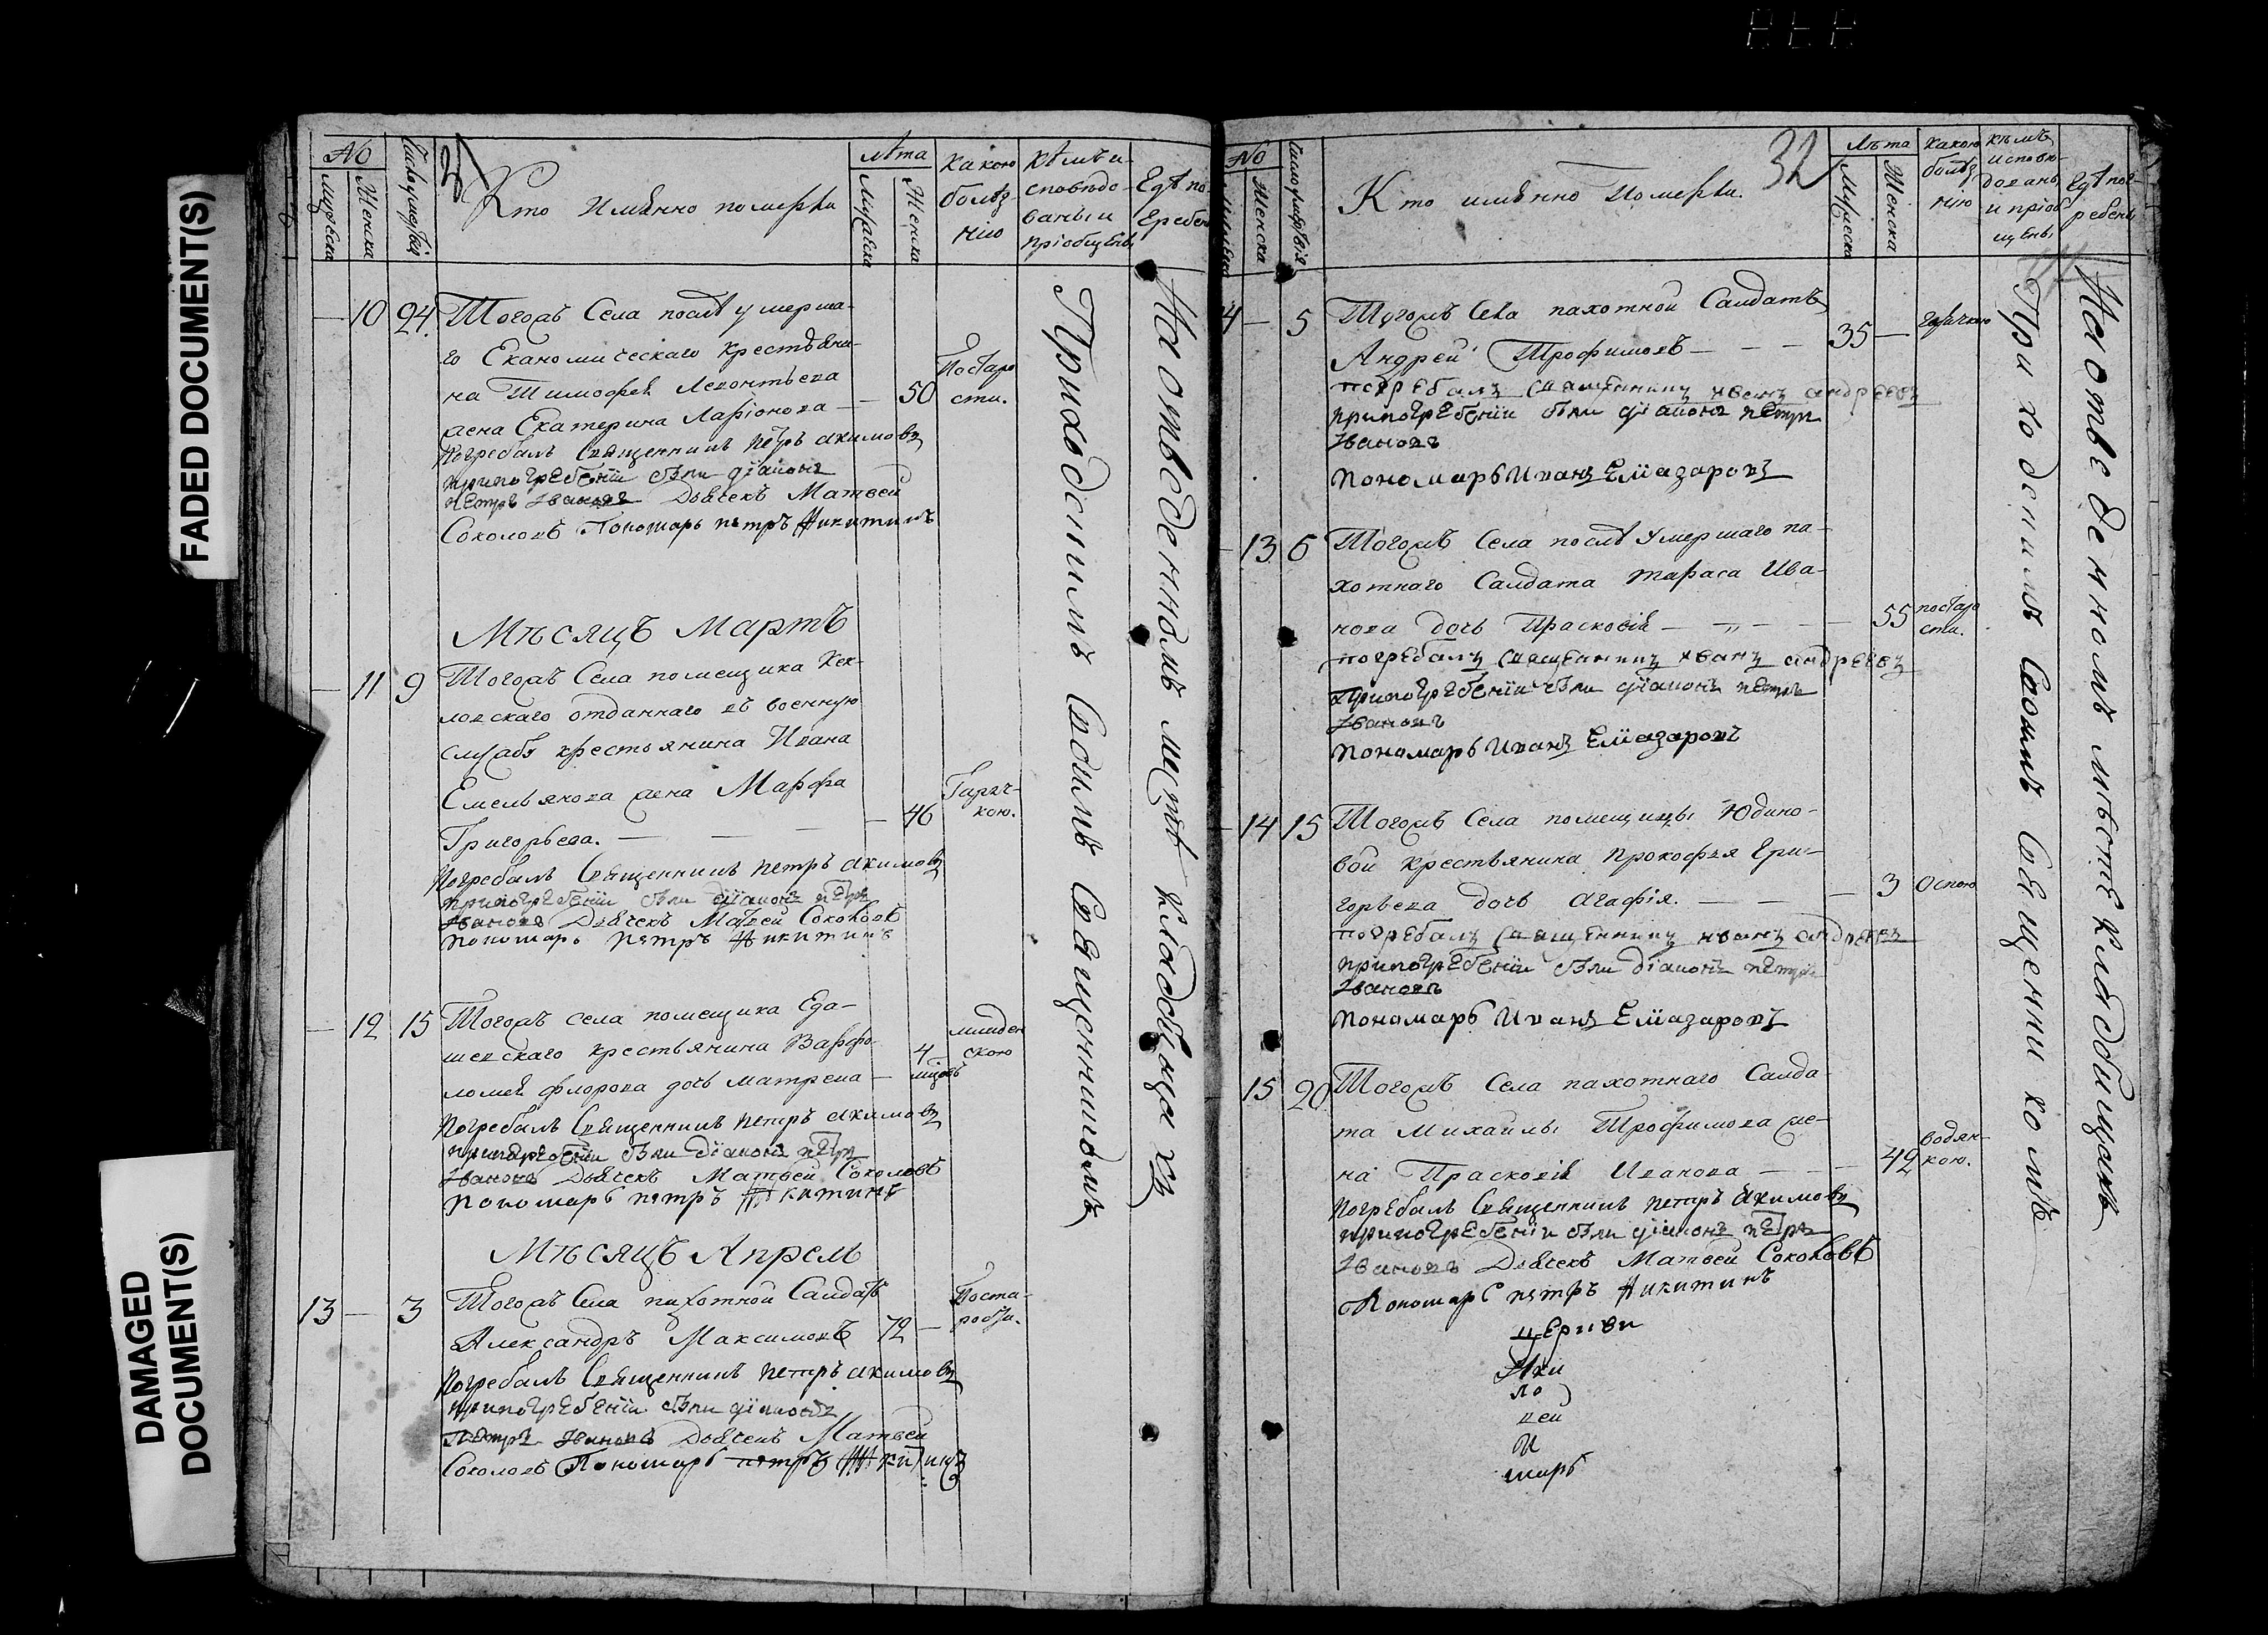 FADED DOCUMENT(S)
DAMAGED
DOCUMENT(S)
№
Женска
Кто Имѣнно померли
лѣта
Женска
какою
болѣз-
нию
кѣмъ и-
сповѣдо-
ваны и
пріобщены
Гдѣ по-
гребены
10 24 Тогожъ Села послѣ умерша-
го Еканомическаго крестьяни-
на Тимофея Леонтьева
жена Екатерина Ларіонова — 50
Постаро
сти.
Погребалъ Священникъ Петръ Акимовъ
при погребеніи были діаконъ
Петръ Ивановъ Дьячекъ Матвей
Соколовъ Пономарь петръ Никитинъ
Мѣсяцъ Мартъ
11 9 Тогожъ Села помещика
отданнаго въ военную
службу крестьянина Ивана
Емельянова жена Марфа
Григорьева. — — — 46
Гарячкою.
Погребалъ Священникъ петръ Акимовъ
при погребеніи были діаконъ петръ
Ивановъ Дьячекъ Матвей Соколовъ
пономарь петръ Никитинъ
12 15 Тогожъ села помещика
крестьянина Варфо-
ломея флорова дочь матрена — 4
младен
скою
Погребалъ Священникъ петръ Акимовъ
при погребеніи были діаконъ петръ
Ивановъ Дьячекъ Матвей Соколовъ
пономарь петръ Никитинъ
Мѣсяцъ Апрель
13 — 3 Тогожъ Села пахотной Салдатъ
Александръ Максимовъ 72 —
Поста-
рости.
Погребалъ Священникъ петръ Акимовъ
при погребеніи были діаконъ
Петръ Ивановъ Дьячекъ Матвей
Соколовъ Пономарь петръ Никитинъ
Приходскимъ Своимъ Священникомъ
На отведенномъ местѣ кладбища хъ
№
Женска
Кто имѣнно Померли.
32
Лѣта
Мужеска
Женска
Какою
болѣз
нію
кѣмъ
исповѣ-
дованы
и пріоб
щены
Гдѣ пог-
ребены
14 — 5 Тогожъ Села пахотной Салдатъ
Андрей Трофимовъ — — — 35 —
горячкою
погребалъ священникъ иванъ андреевъ
при погребеніи были діаконъ петръ
Ивановъ
Пономарь Иванъ Елиазаровъ
13 6 Тогожъ Села послѣ Умершаго па-
хотнаго Салдата Тараса Ива-
нова дочь Прасковія — „ — 55
постаро
сти.
погребалъ священникъ иванъ андреевъ
При погребеніи были діаконъ петръ
Ивановъ
Пономарь Иванъ Елиазаровъ
14 15 Тогожъ Села помещицы Юдино-
вой крестьянина Прокофья Гри-
горьева дочь Агафія. — — 3
Оспою
погребалъ священникъ иванъ андреевъ
при погребеніи были діаконъ петръ
Ивановъ
Пономарь Иванъ Елиазаровъ
15 20 Тогожъ Села пахотнаго Салда-
та Михайлы Трофимова же-
на Прасковія Иванова — — 42
водян-
кою.
Погребалъ Священникъ петръ Акимовъ
при погребеніи были діаконъ петръ
Ивановъ Дьячекъ Матвей Соколовъ
Пономарь петръ Никитинъ
церкви
Ники
ло
марь
Приходскимъ Своимъ Священникомъ
На отведенномъ местѣ кладбищахъ